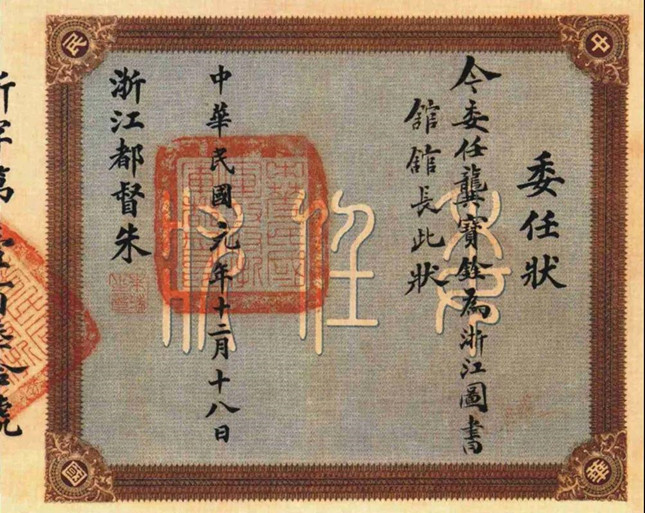 委任狀
今委任龔寶銓為浙江圖書
館館長此狀
中華民國元年十二月十八日
浙江都督朱
委任狀
中華民國